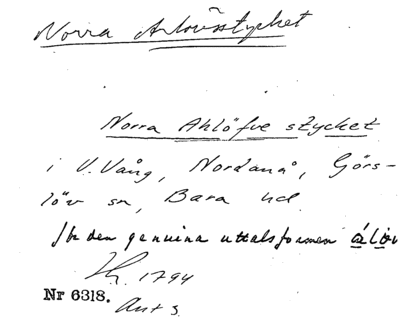 Norra Arlövsstycket
Norra Ahlöfve stycket
i V. Vång, Nordanå, Görs-
löv sn, Bara hd
Jfr den genuina uttalsformen
1794
Nr 6318. Ant 3.